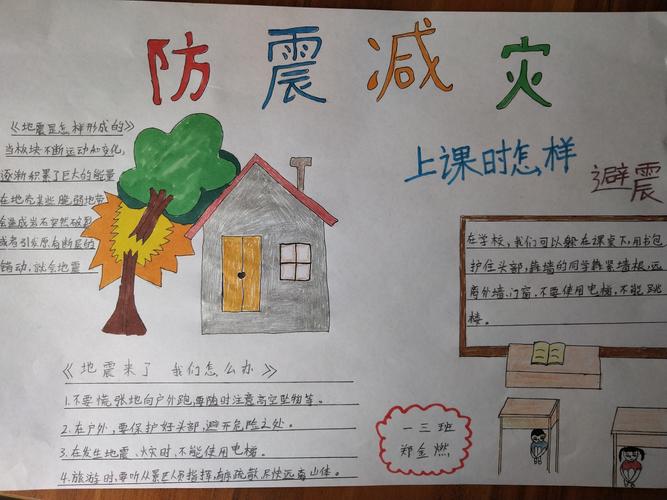 防震减灾
《地震是怎样形成的》
当板块不断运动和变化,
逐渐积累了巨大的能量
在地壳某些脆弱地带
会造成岩石突然破裂
或者引发原有断层的
错动,就会地震
上课时怎样
避震
在学校,我们可以躲在课桌下,用书包
护住头部,靠墙的同学靠紧墙根,远
离外墙、门窗,不要使用电梯,不能跳
楼。
《地震来了 我们怎么办》
1.不要慌张地向户外跑,要随时注意高空坠物等。
2.在户外,要保护好头部,避开危险之处。
3.在发生地震、火灾时,不能使用电梯。
4.旅游时,要听从景区人员指挥,有序疏散,尽快远离山体。
一三班
郑金燃